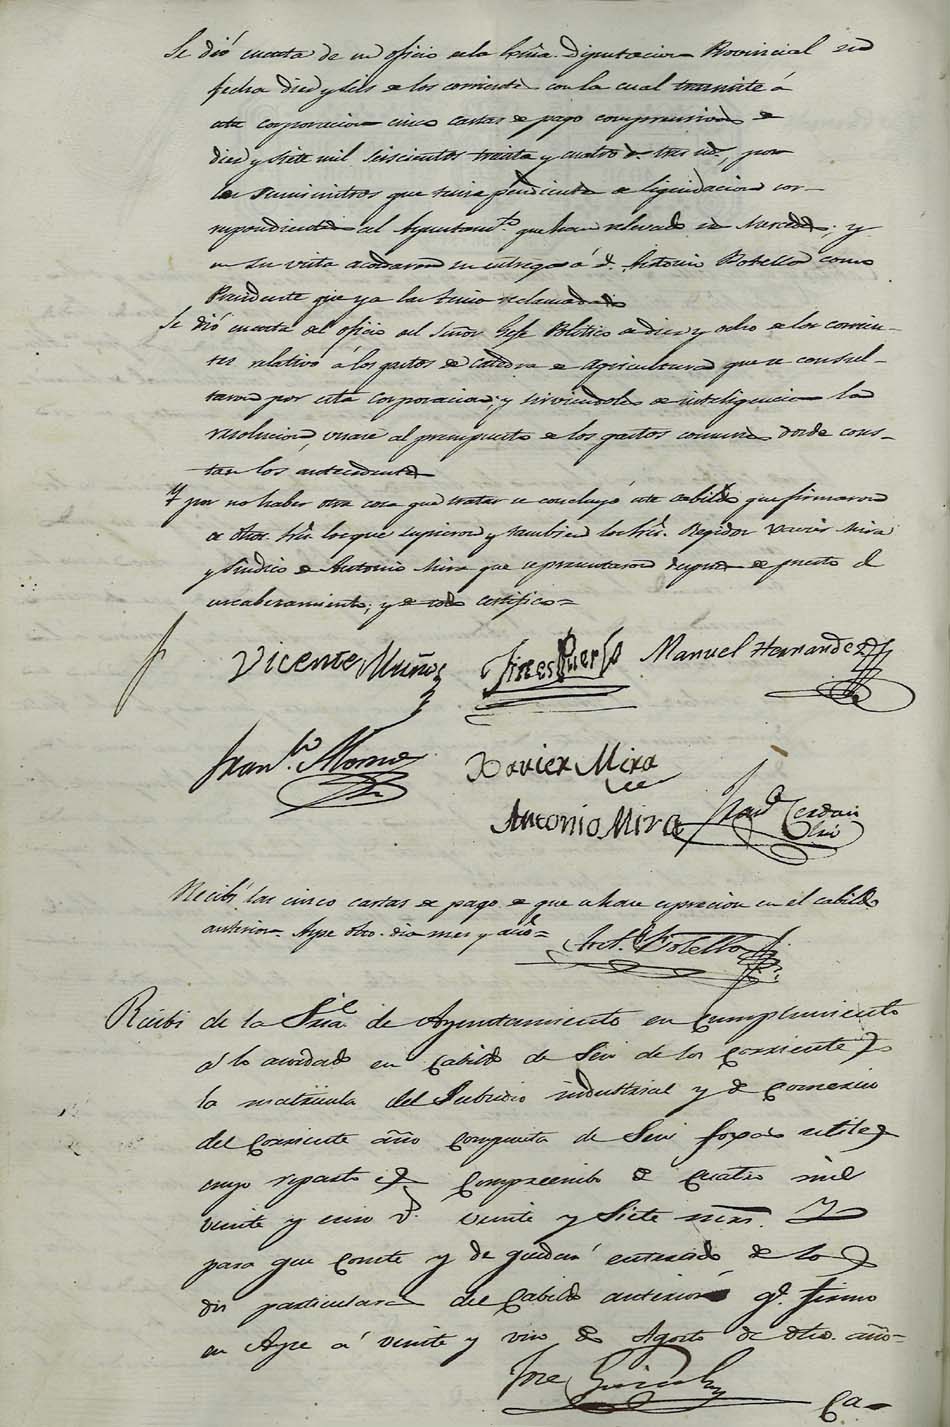 Se dió cuenta de un oficio de la Exma. Diputacion Provincial su
fecha diez y seis de los corrientes con la cual transmite á
esta corporacion cinco cartas de pago comprensivas de
diez y siete mil seiscientos treinta y cuatro r.s tres ms, por
los suministros que tenia pendientes de liquidacion cor-
respondientes al Ayuntam.to que han relevado sus Mercedes; y
en su vista acordaron su entrega á d. Antonio Botella como
Presidente que ya las tenia reclamadas
Se dió cuenta del oficio del Señor Gefe Politico de diez y ocho de los corrien-
tes relativo á los gastos de catedra de agricultura que se consul-
taron por esta corporacion; y sirviendole de inteligencia la
resolucion, unase al presupuesto de los gastos comunes donde cons-
tan los antecedentes
Y por no haber otra cosa que tratar se concluyó este cabildo que firmaron
de dhos. Sres. los que supieron y tambien los Sres. Regidor Xavier Mira
y Sindico Antonio Mira que se presentaron despues de puesto el
encabezamiento; y de todo certifico=
Vicente Muñoz Gines Puerto Manuel Hernandez
Fran.co Alonso Xavier Mira
Antonio Mira Fran.co Cerdan
Recibí las cinco cartas de pago de que se hace espresion en el cabildo
anterior. Aspe dho. dia mes y año=
Ant.o Botella
Recibi de la Sria. de Ayuntamiento en cumplimiento
á lo acordado en Cabildo de Seis de los Corrientes
la matricula del Subsidio industrial y de Comercio
del Corriente año compuesta de Seis foxas utiles
cuyo reparto es Comprensibo de Cuatro mil
veinte y cinco r.s veinte y Siete mrs. Y
para que Conste y de quedar enterado de lo
dis particulares del Cabildo anterior q.e firmo
en Aspe á veinte y uno de Agosto de dho. año=
Jose
Ca=